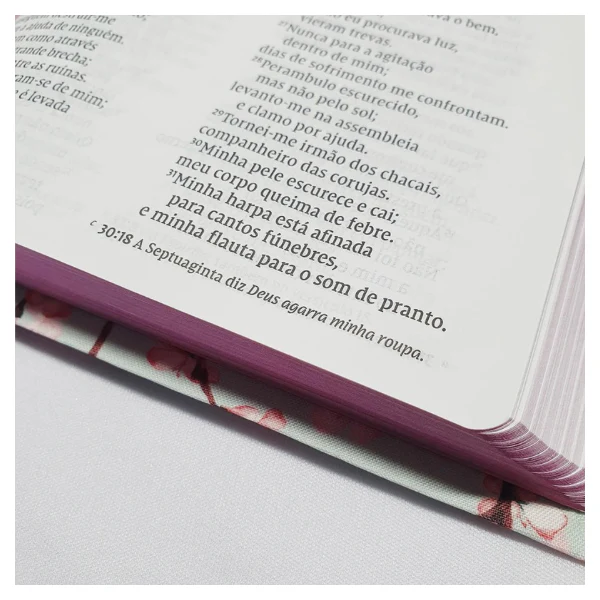 a ajuda de ninguém.
como através
grande brecha;
as ruínas.
de mim;
é levada
eu procurava o bem,
vieram trevas.
luz,
²⁷Nunca para a agitação
dentro de mim;
dias de sofrimento me confrontam.
²⁸Perambulo escurecido,
mas não pelo sol;
levanto-me na assembleia
e clamo por ajuda.
²⁹Tornei-me irmão dos chacais,
companheiro das corujas.
³⁰Minha pele escurece e cai;
meu corpo queima de febre.
³¹Minha harpa está afinada
para cantos fúnebres,
e minha flauta para o som de pranto.
c 30:18 A Septuaginta diz Deus agarra minha roupa.